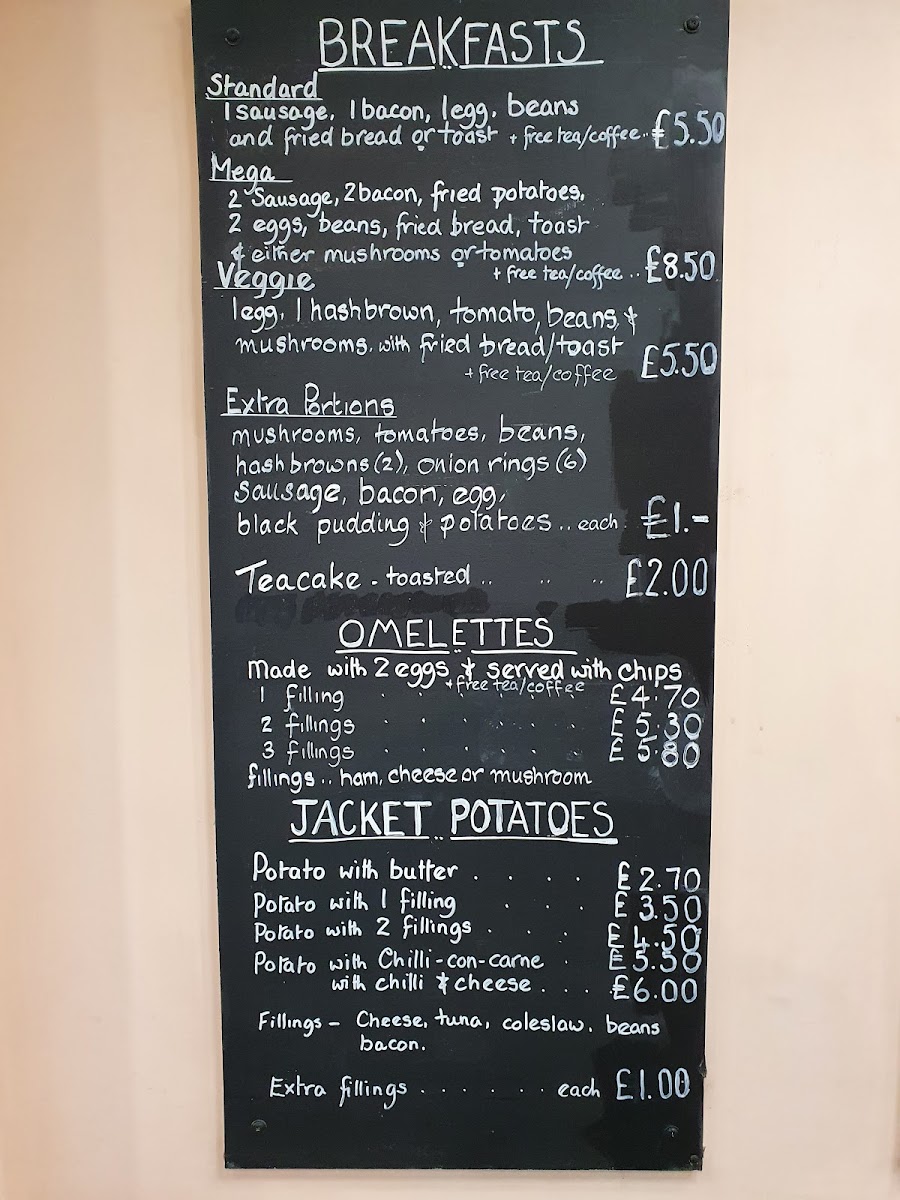 BREAKFASTS
Standard
1 sausage, 1 bacon, 1 egg, beans
and fried bread or toast + free tea/coffee.. £5.50
Mega
2 Sausage, 2 bacon, fried potatoes,
2 eggs, beans, fried bread, toast
& either mushrooms or tomatoes
+ free tea/coffee .. £8.50
Veggie
1 egg, 1 hash brown, tomato, beans, &
mushrooms, with fried bread/toast £5.50
+ free tea/coffee
Extra Portions
mushrooms, tomatoes, beans,
hash browns (2), onion rings (6)
Sausage, bacon, egg,
black pudding & potatoes .. each £1.-
Teacake - toasted .. .. .. £2.00
OMELETTES
Made with 2 eggs & served with chips
+ free tea/coffee
1 filling . . . . . . £4.70
2 fillings . . . . . . £5.30
3 fillings . . . . . . £5.80
fillings .. ham, cheese or mushroom
JACKET POTATOES
Potato with butter . . . . £2.70
Potato with 1 filling . . . £3.50
Potato with 2 fillings . . . £4.50
Potato with Chilli-con-carne . £5.50
with chilli & cheese . . . £6.00
Fillings - Cheese, tuna, coleslaw, beans
bacon.
Extra fillings . . . . . . . each £1.00